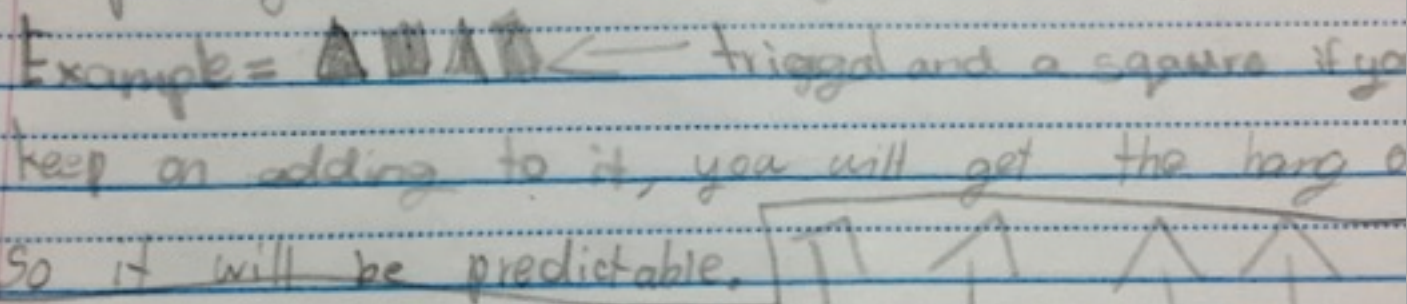 Example= triggal and a sqaure if yo
keep on adding to it, you will get the hang o
so it will be predictable.